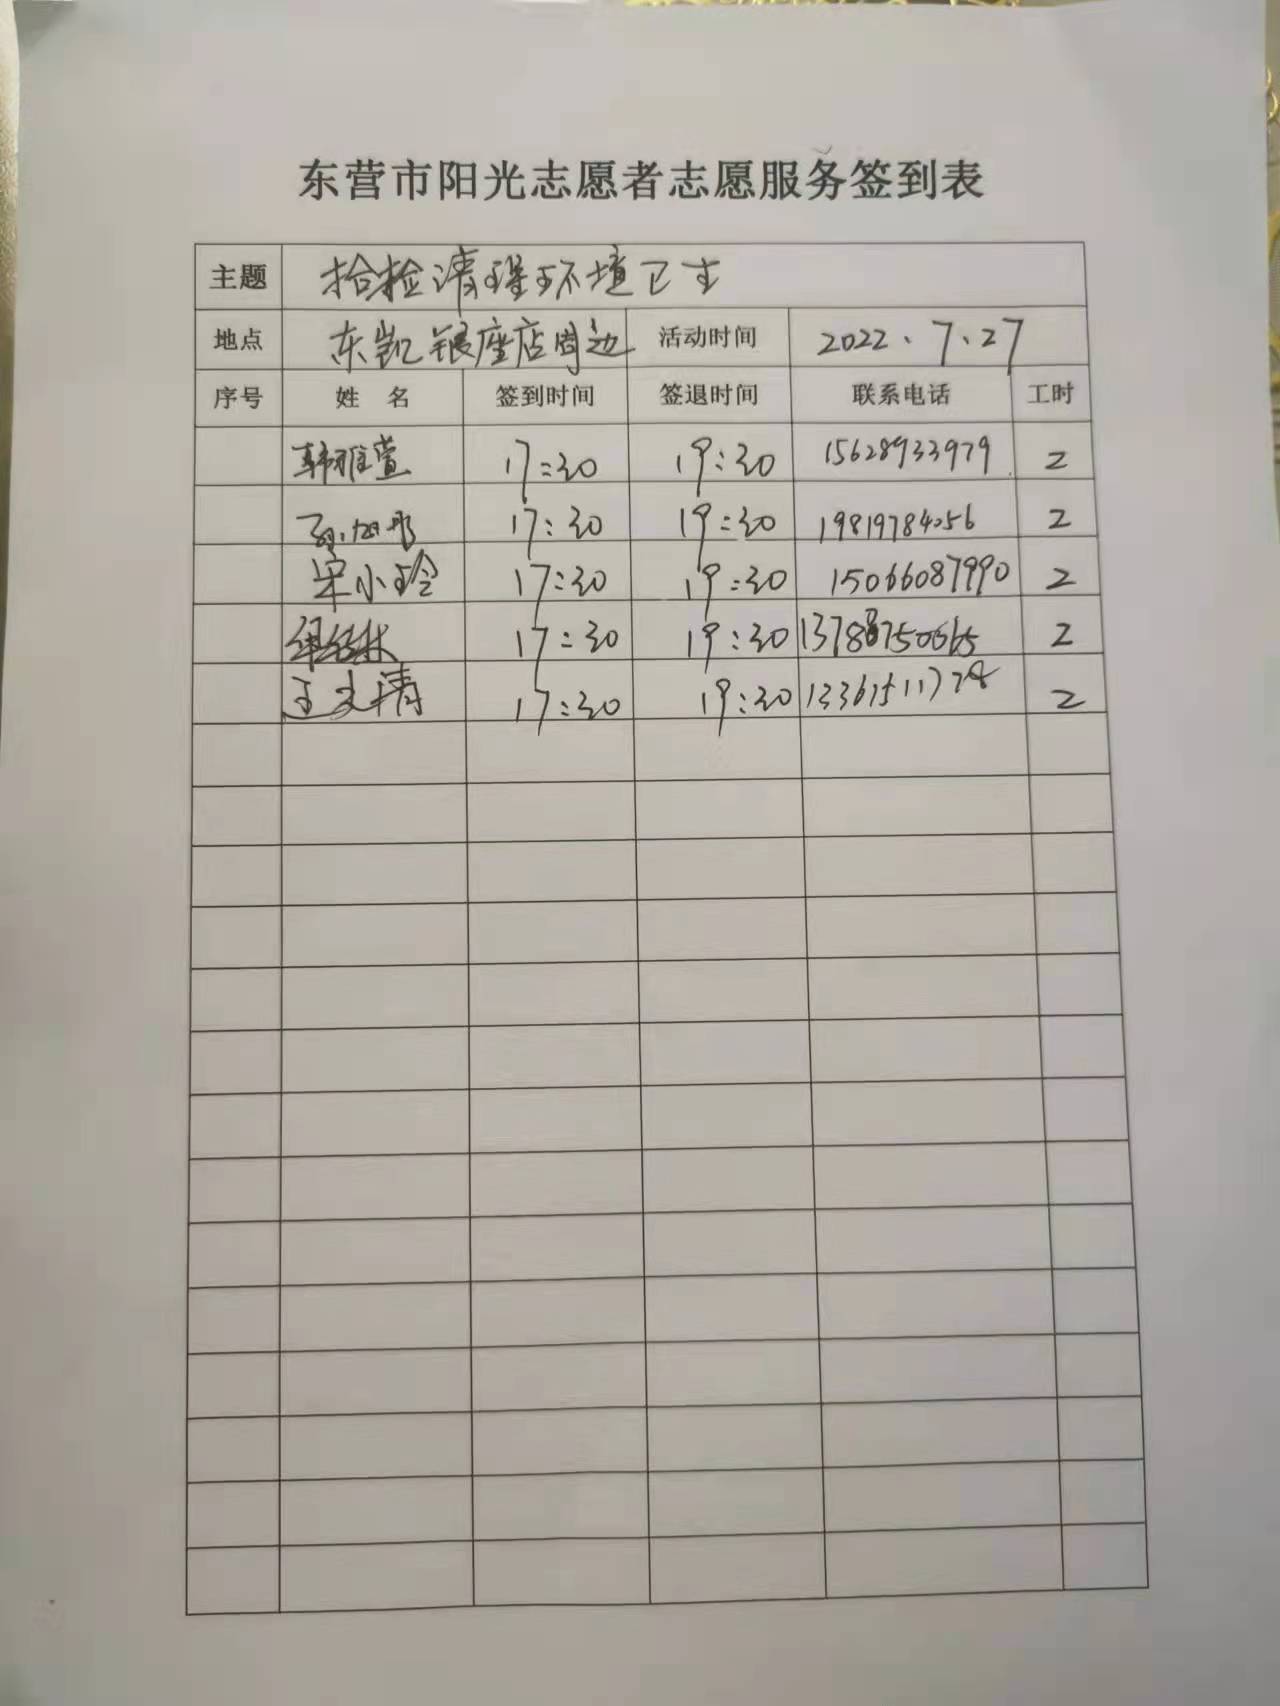 东营市阳光志愿者志愿服务签到表
主题 拾检清理环境卫生
地点 东凯银座店周边 活动时间 2022.7.27
序号 姓名 签到时间 签退时间 联系电话 工时
韩雅萱 17:30 19:30 15628933979 2
17:30 19:30 19819784056 2
宋小玲 17:30 19:30 15066087990 2
17:30 19:30 2
王文清 17:30 19:30 2